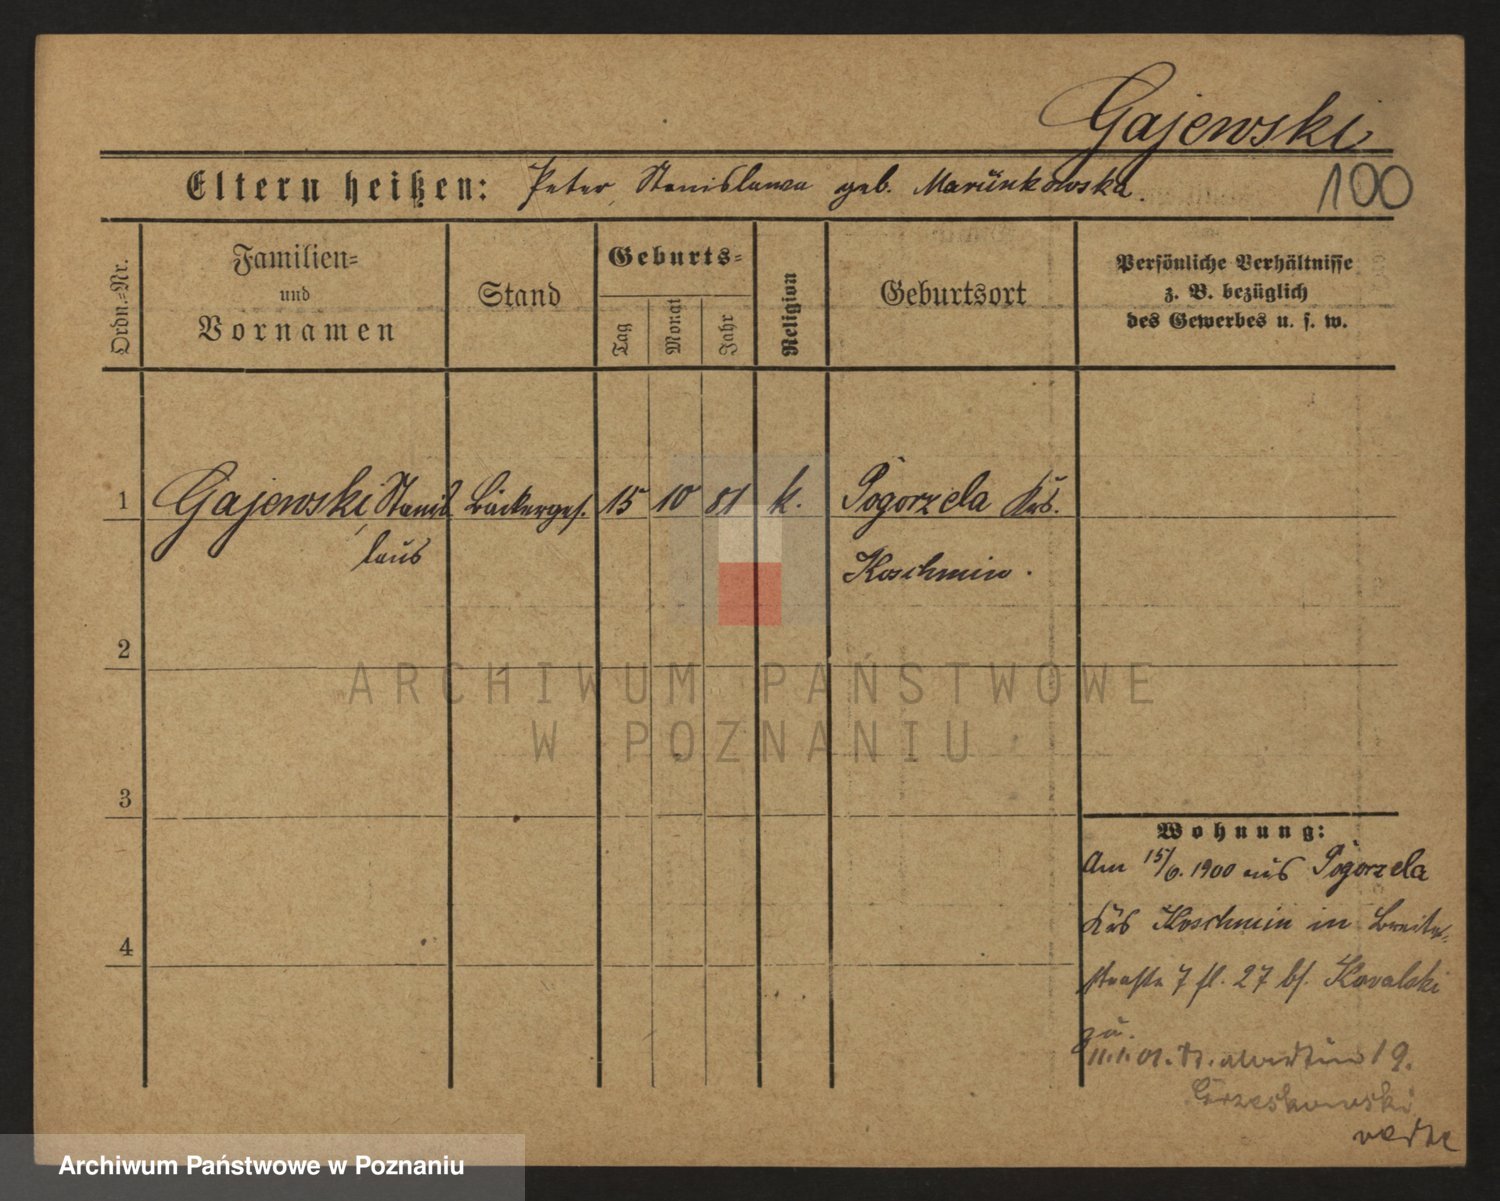 Gajewski
100
Eltern heißen: Peter, Stanislawa geb. Marünkowska.
Ordn.-Nr.
Familien-
und
Vornamen
Stand
Geburts-
Tag
Monat
Jahr
Religion
Geburtsort
Persönliche Verhältnisse
z. B. bezüglich
des Gewerbes u. s. w.
1 Gajewski, Stanis Bäckerges. 15 10 81 k. Pogorzela Krs.
laus Koschmin.
2
ARCHIWUM PAŃSTWOWE
W POZNANIU
3
4
Wohnung:
Am 15/6. 1900 aus Pogorzela
Krs Koschmin in Breite-
straße 7 27 Kowalski
zu.
11.1.01. St. Martin 19.
Grzeskowski
Archiwum Państwowe w Poznaniu